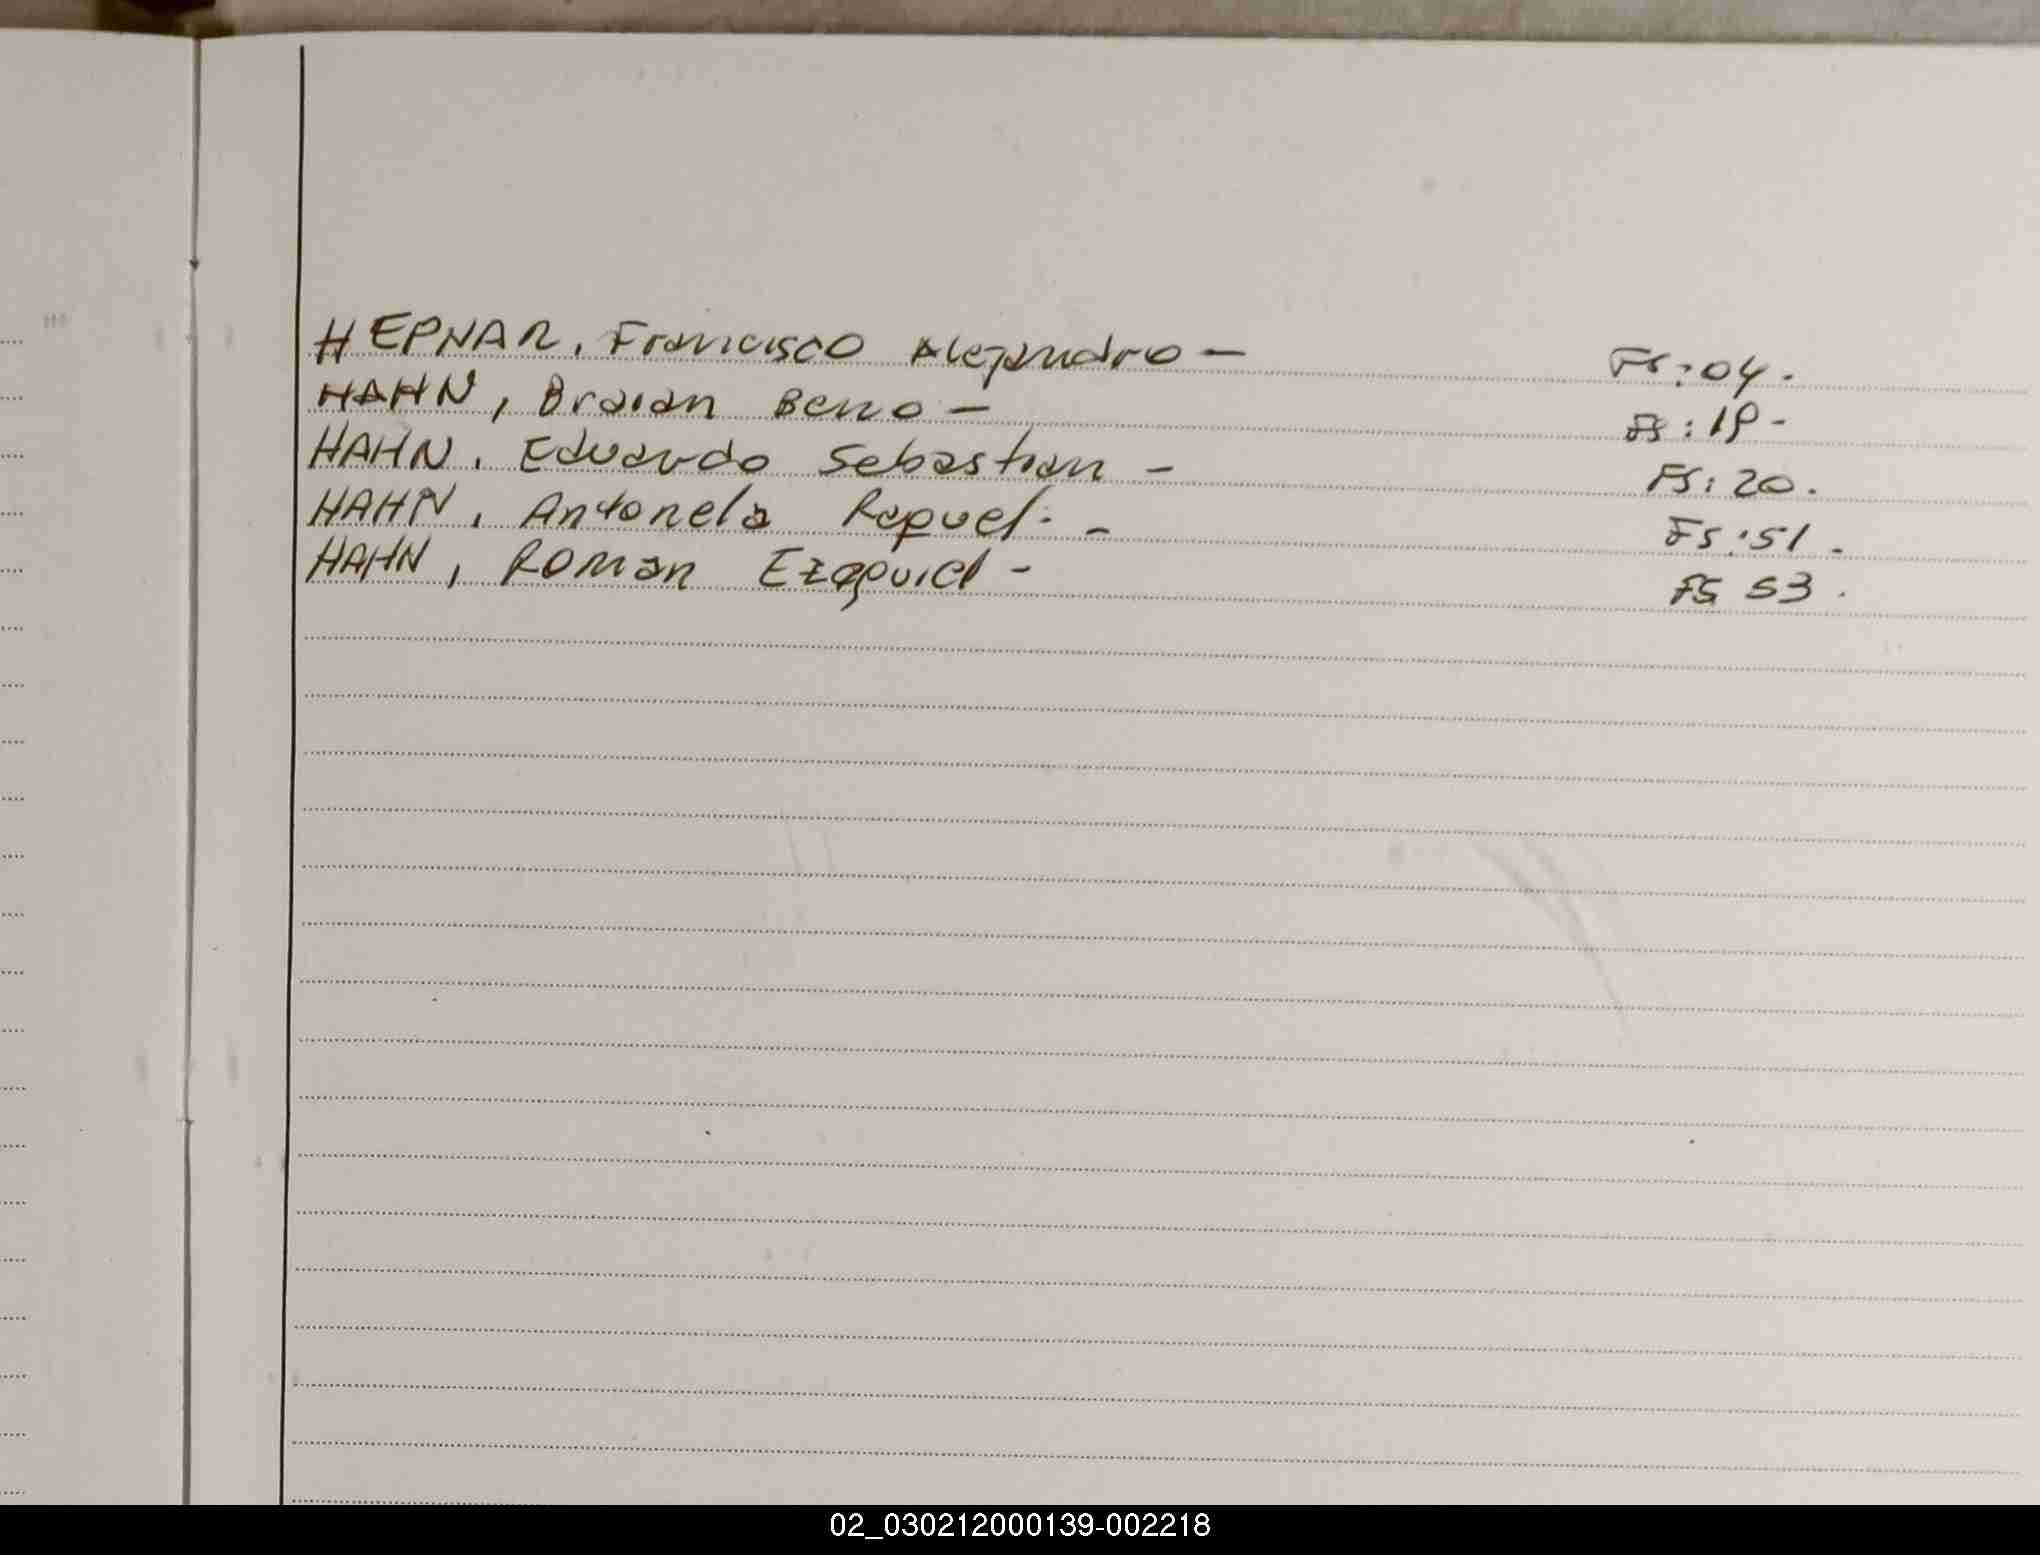 HEPNAR, Francisco Alejandro — Fs: 04.
HAHN, Braian Beno — Fs: 19-
HAHN, Eduardo Sebastian — Fs: 20.
HAHN, Antonela Raquel. - Fs: 51.
HAHN, Roman Ezequiel - Fs 53.
02_030212000139-002218